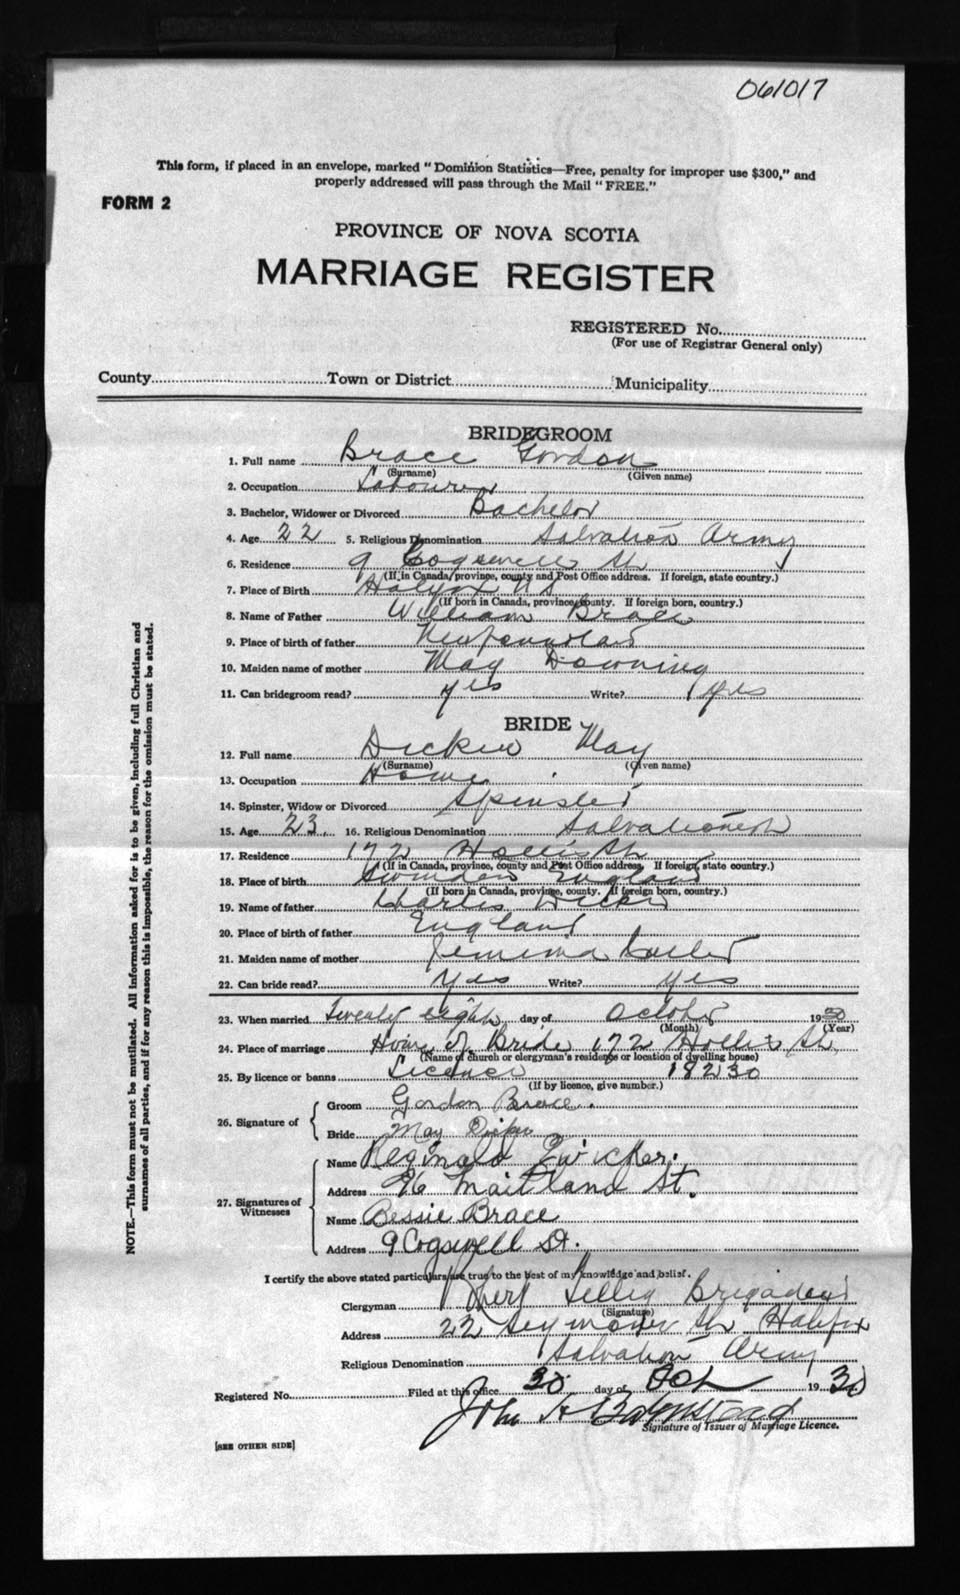 061017
This form, if placed in an envelope, marked "Dominion Statistics—Free, penalty for improper use $300," and
properly addressed will pass through the Mail "FREE."
FORM 2
PROVINCE OF NOVA SCOTIA
MARRIAGE REGISTER
REGISTERED No.
(For use of Registrar General only)
County Town or District Municipality
BRIDEGROOM
1. Full name Brace Gordon
(Surname) (Given name)
2. Occupation Labourer
3. Bachelor, Widower or Divorced Bachelor
4. Age 22 5. Religious Denomination Salvation Army
6. Residence 9 Cogswell St
(If in Canada, province, county and Post Office address. If foreign, state country.)
7. Place of Birth Halifax N S
(If born in Canada, province, county. If foreign born, country.)
8. Name of Father William Brace
9. Place of birth of father Newfoundland
10. Maiden name of mother May Downing
11. Can bridegroom read? yes Write? yes
BRIDE
12. Full name May
(Surname) (Given name)
13. Occupation Home
14. Spinster, Widow or Divorced Spinster
15. Age 23 16. Religious Denomination Salvationist
17. Residence 172 Hollis St
(If in Canada, province, county and Post Office address. If foreign, state country.)
18. Place of birth Swindon England
(If born in Canada, province, county. If foreign born, country.)
19. Name of father Charles
20. Place of birth of father England
21. Maiden name of mother Jemima
22. Can bride read? Yes Write? yes
23. When married Twenty eight day of October 1930
(Month) (Year)
24. Place of marriage Home of Bride 172 Hollis St
(Name of church or clergyman's residence or location of dwelling house)
25. By licence or banns Licence 18230
(If by licence, give number.)
26. Signature of Groom Gordon Brace.
Bride May
27. Signatures of Witnesses Name Reginald Zwicker.
Address 96 Maitland St.
Name Bessie Brace
Address 9 Cogswell St.
I certify the above stated particulars are true to the best of my knowledge and belief.
Clergyman Brigadier
(Signature)
Address 22 Seymour St Halifax
Religious Denomination Salvation Army
Registered No. Filed at this office 30 day of Oct 1930
John A
Signature of Issuer of Marriage Licence.
[SEE OTHER SIDE]
NOTE.—This form must not be mutilated. All information asked for is to be given, including full Christian and
surnames of all parties, and if for any reason this is impossible, the reason for the omission must be stated.